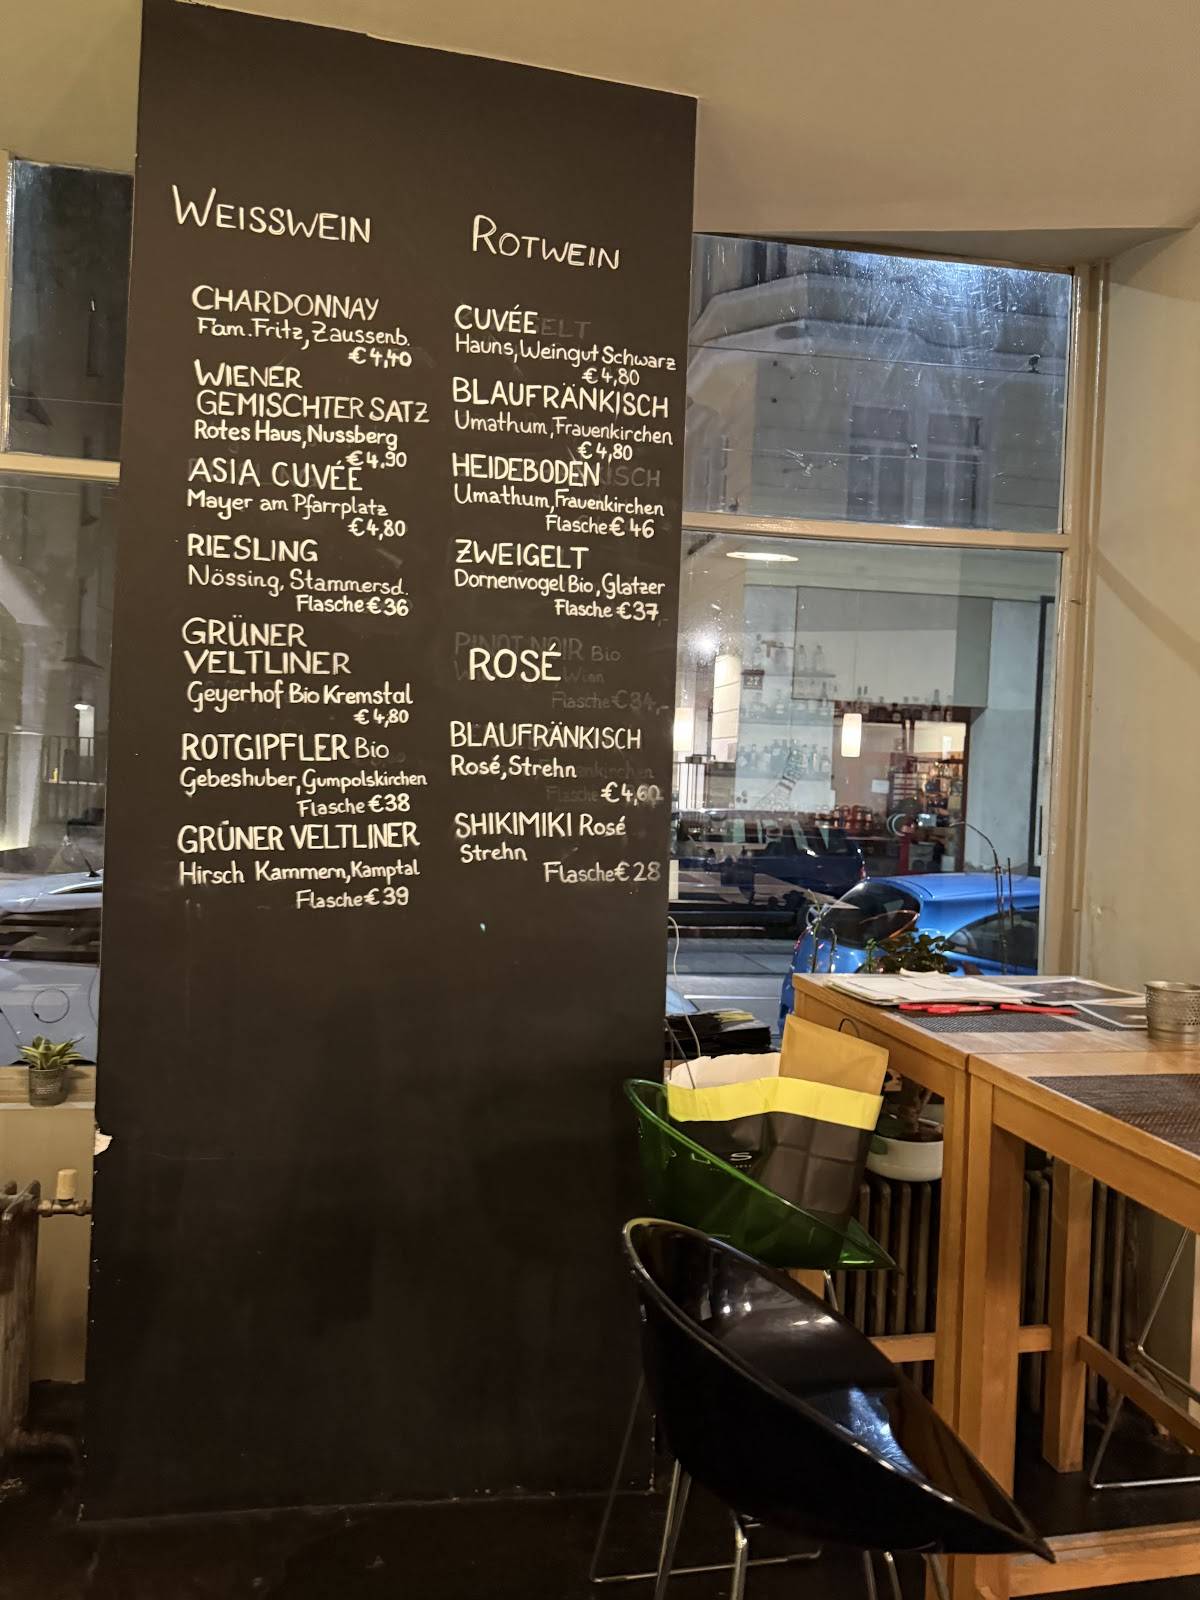 WEISSWEIN
CHARDONNAY
Fam. Fritz, Zaussenb.
€ 4,40
WIENER
GEMISCHTER SATZ
Rotes Haus, Nussberg
€ 4,90
ASIA CUVÉE
Mayer am Pfarrplatz
€ 4,80
RIESLING
Nössing, Stammersd.
Flasche € 36
GRÜNER
VELTLINER
Geyerhof Bio Kremstal
€ 4,80
ROTGIPFLER Bio
Gebeshuber, Gumpolskirchen
Flasche € 38
GRÜNER VELTLINER
Hirsch Kammern, Kamptal
Flasche € 39
ROTWEIN
CUVÉE
Hauns, Weingut Schwarz
€ 4,80
BLAUFRÄNKISCH
Umathum, Frauenkirchen
€ 4,80
HEIDEBODEN
Umathum, Frauenkirchen
Flasche € 46
ZWEIGELT
Dornenvogel Bio, Glatzer
Flasche € 37,-
PINOT NOIR Bio
Wien
Flasche € 34,-
ROSÉ
BLAUFRÄNKISCH
Rosé, Strehn
€ 4,60
SHIKIMIKI Rosé
Strehn
Flasche € 28
27